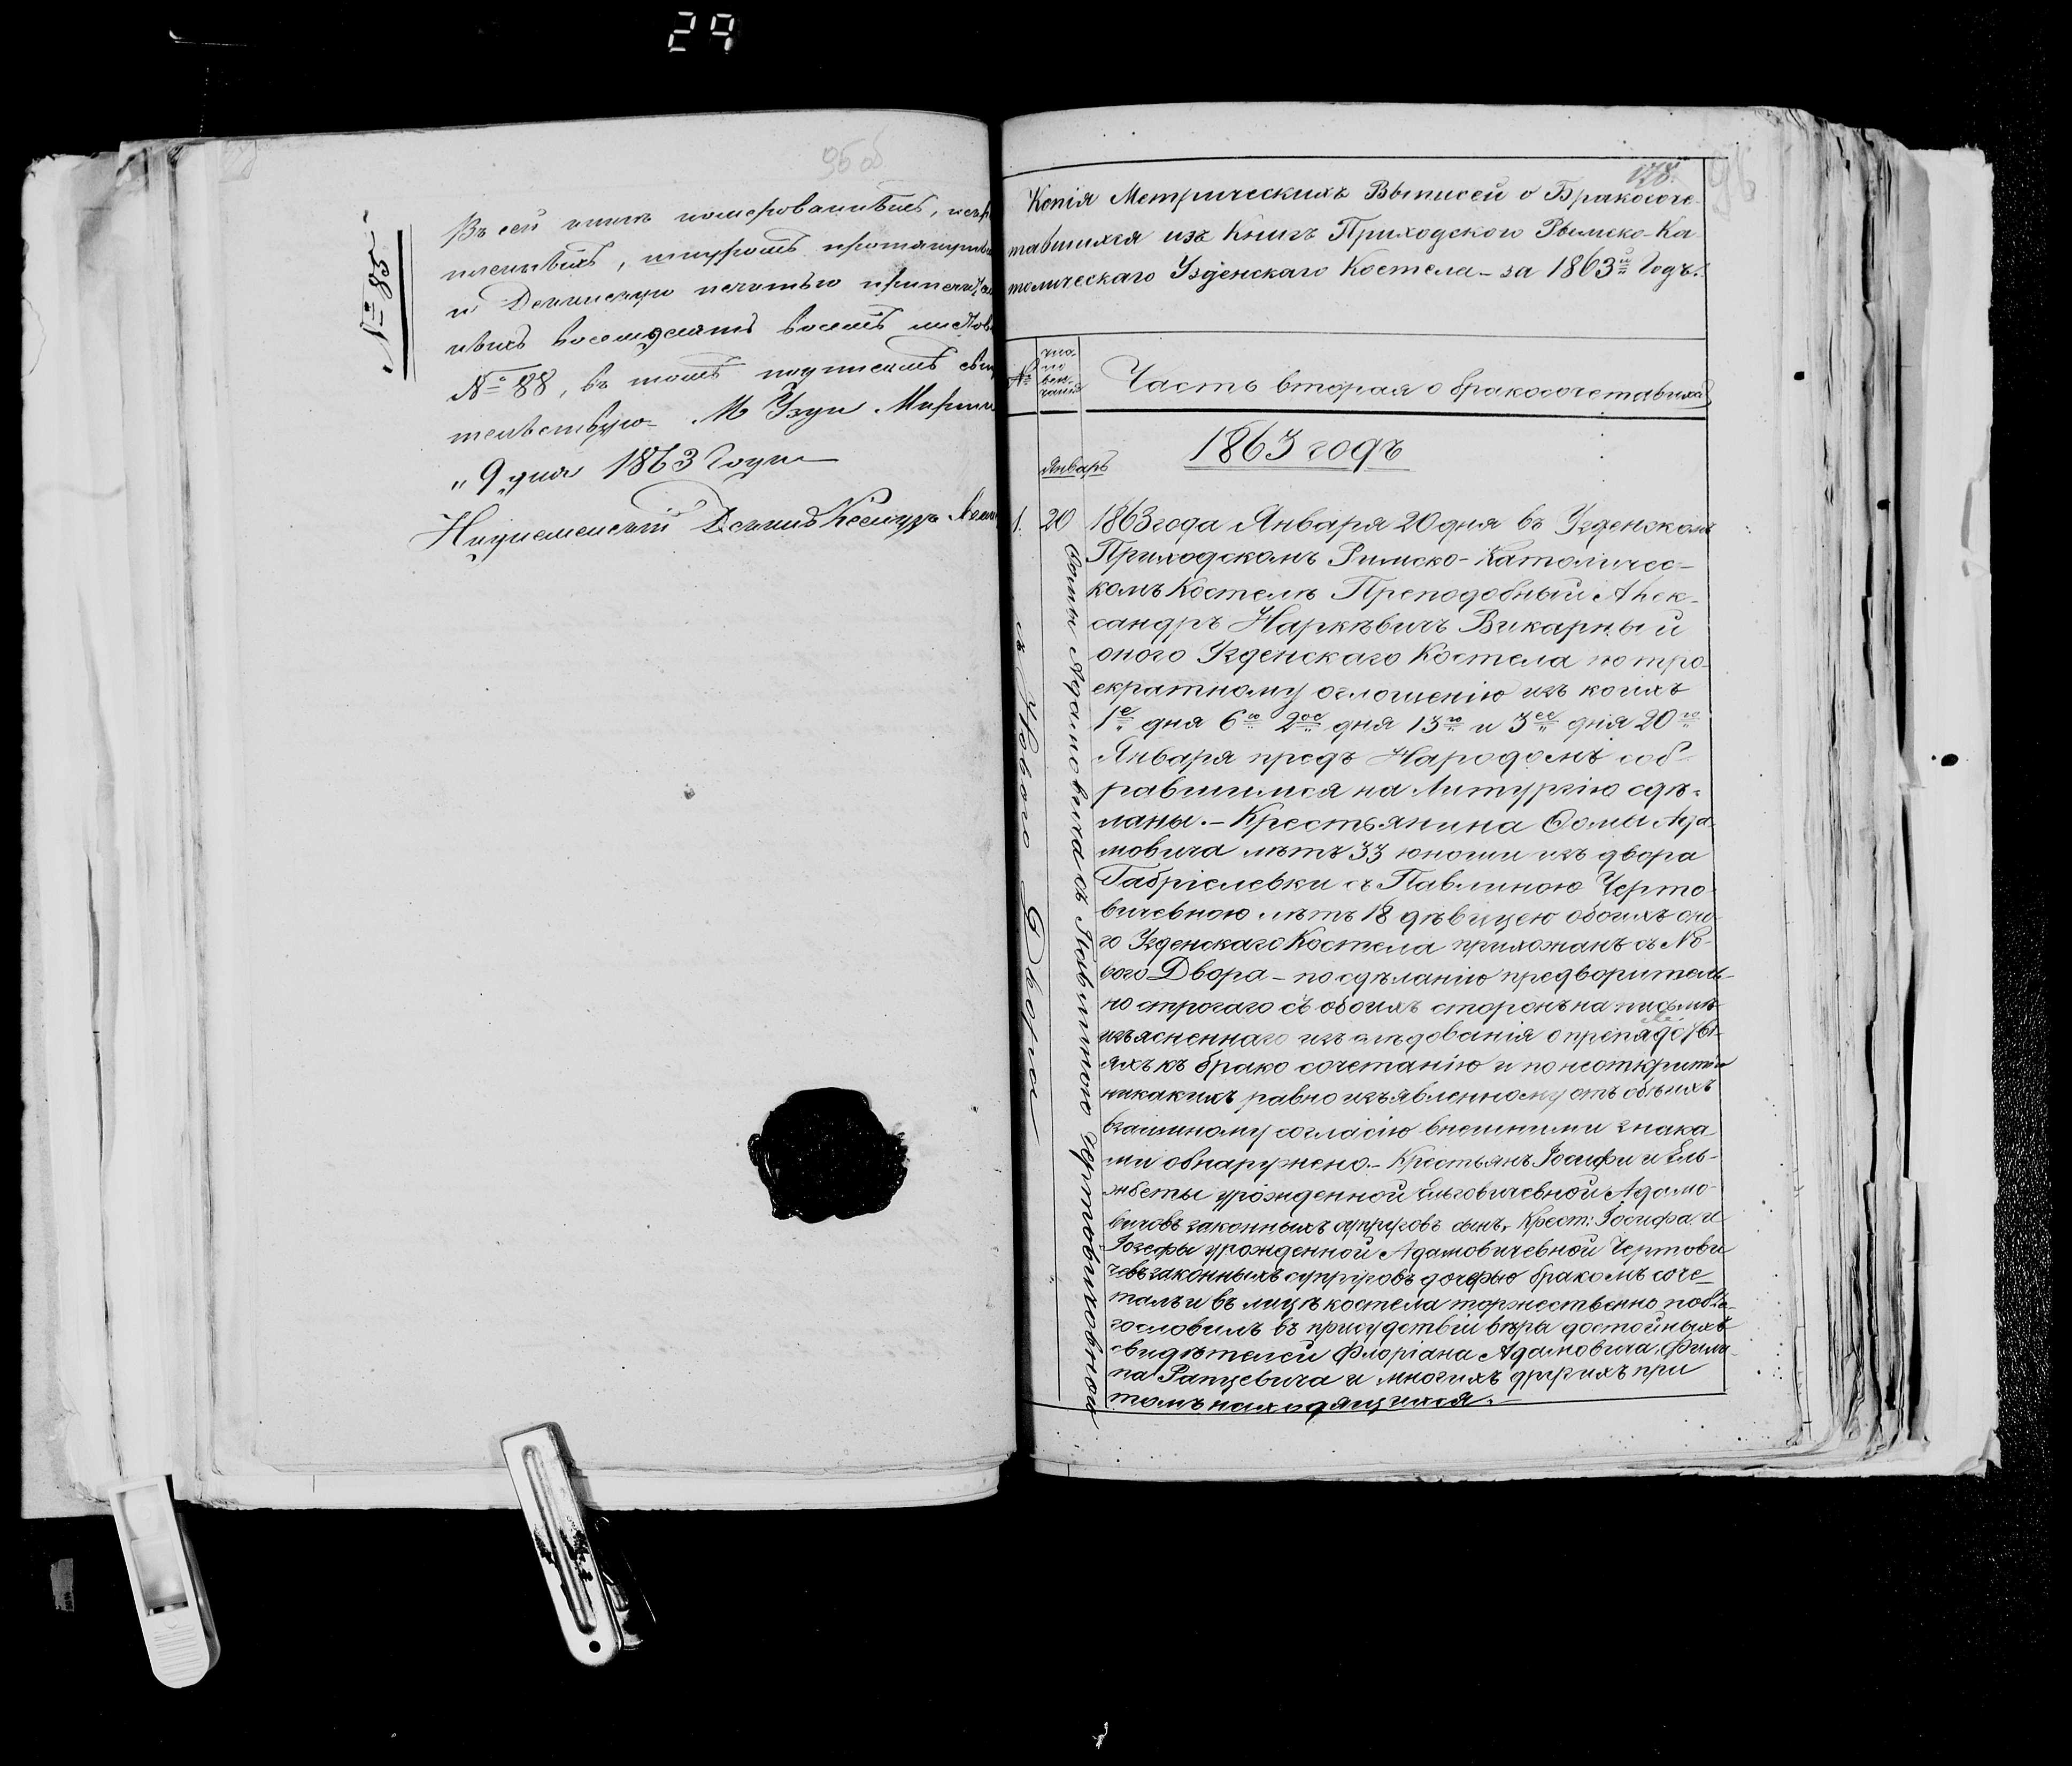 29
95 об
№ 88
Въ сей книгѣ
шнуромъ
и Деканскую печатью
восемдесятъ восемъ листовъ
№ 88, въ томъ подписомъ
М Узда
„9 дня 1863 Года
Наднеменскій Деканъ Ксендзъ
178.
96
Копія Метрическихъ Выписей о Бракосоче-
тавшихся изъ Книгъ Приходского Рымско-Ка
толическаго Узденскаго Костела – за 1863й Годъ.
№
число вѣн-чанія
Часть вторая о бракосочетавшихся
1863 годъ
Январь
1. 20 1863 года Января 20 дня въ Узденскомъ
Приходскомъ Римско-Католичес-
комъ Костелѣ Преподобный Алек-
сандръ Наркѣвичъ Викарный
оного Узденскаго Костела по тро-
екратному оглошенію изъ коихъ
1е дня 6го 2ое дня 13го и 3ее дня 20го
Января предъ Народомъ соб-
равшимся на Литургію сдѣ-
ланы. – Крестьянина Ѳомы Ада-
мовича лѣтъ 33 юноши изъ двора
Габріелевки съ Павлиною Черто-
вичевною лѣтъ 18 дѣвицею обоихъ оно-
го Узденскаго Костела прихожанъ съ Но-
вого Двора – по сдѣланію предворитель-
но строгаго съ обоихъ сторонъ на письмѣ
изъясненнаго изъслѣдованія о препядстві-
яхъ къ брако сочетанію и по неоткрытіи
никакихъ равно изъявленному отъ обѣихъ
взаимному согласію внешними знака
ми обнаружено. – Крестьянъ Іосифа и Ель-
жбеты урожденной Ельговичевной Адамо-
вичовъ законныхъ супруговъ сынъ, Крест: Іосифа и
Іозефы урожденной Адамовичевной Чертови
чевъ законныхъ супруговъ дочерью бракомъ соче-
талъ и въ лицѣ костела торжественно побла-
гословилъ въ присудствіи вѣры достойныхъ
свидѣтелей Флоріана Адамовича, Фили-
па Рацевича и многихъ другихъ при
томъ находящихся. –
Ѳомы Адамовича съ Павлиною Чертовичовною
съ Нового Двора